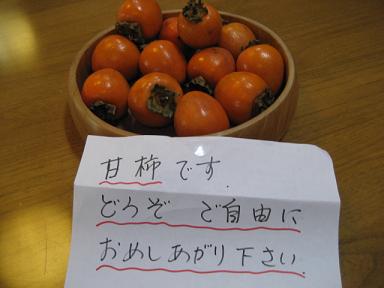 甘柿です.
どうぞ ご自由に
おめしあがり下さい.